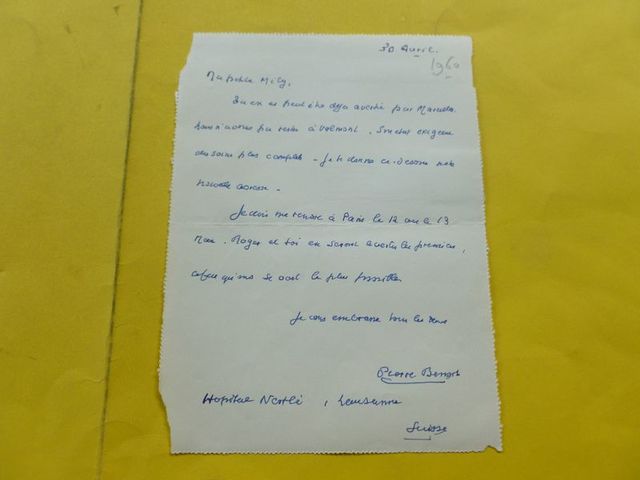 30 Avril.
1960
Ma petite Mily,
Tu en as peut-être déjà avertie par Marcelle.
Nous n'avons pu rester à Valmont. Son état exigeait
des soins plus complets - Je te donne ci-dessous notre
nouvelle adresse -
Je dois me rendre à Paris le 12 ou le 13
Mai. Roger et toi en seront avertis les premiers,
afin qu'on se voit le plus possible.
Je vous embrasse tous les deux
Pierre Benoit
Hopital Nestlé, Lausanne
Suisse